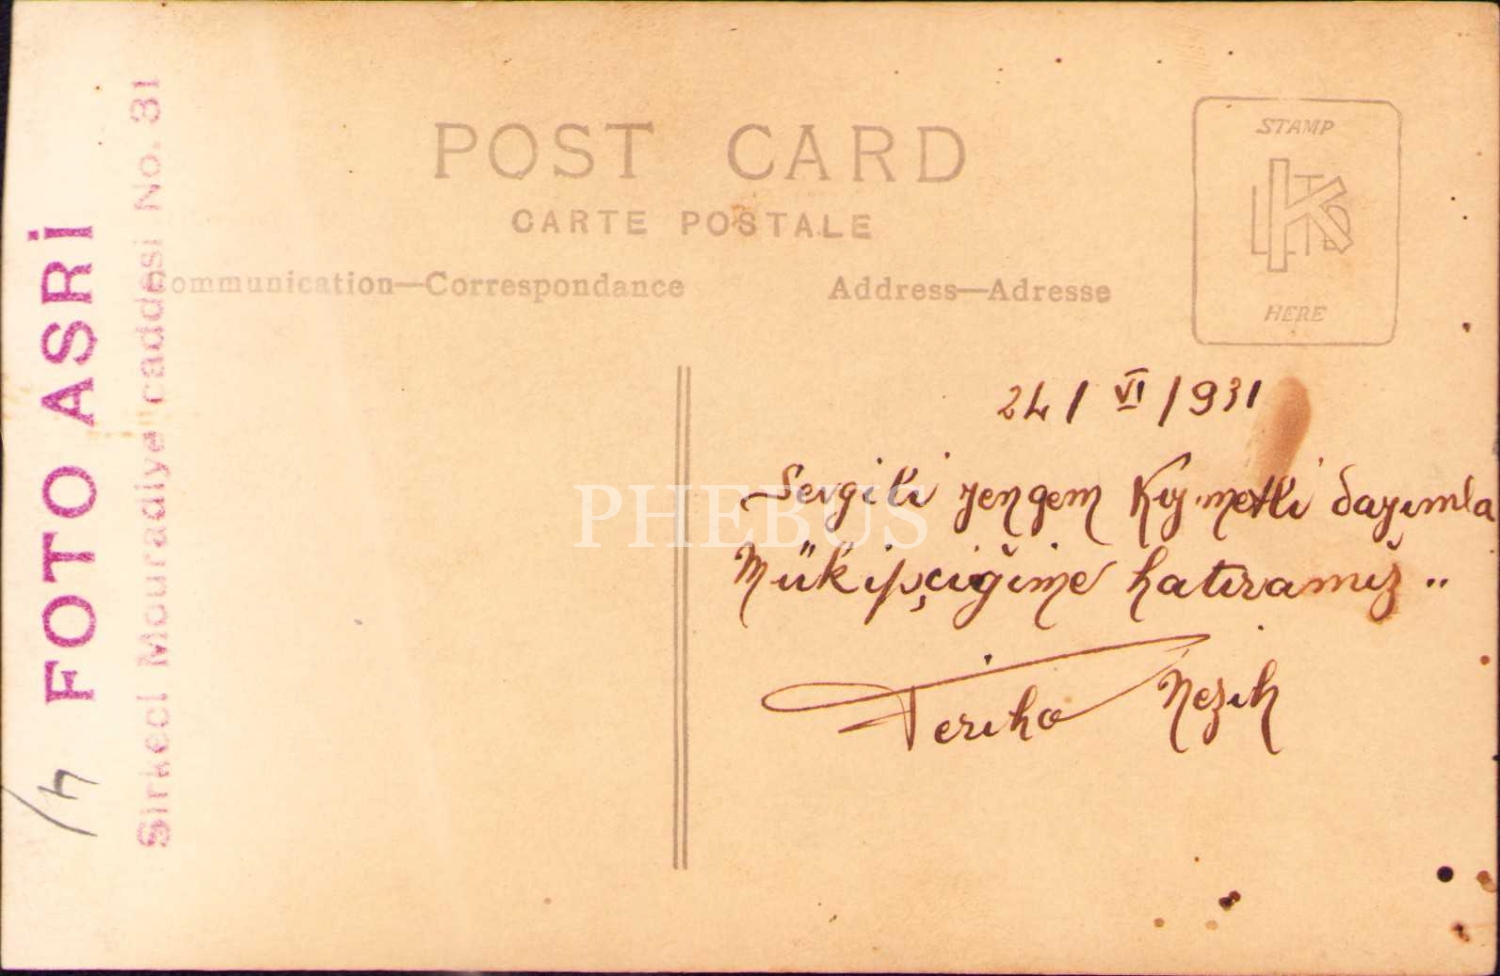 POST CARD
CARTE POSTALE
Communication—Correspondance
Address—Adresse
STAMP
K LTD
HERE
FOTO ASRİ
Sirkeci Mouradiye caddesi No. 31
24 / VI / 931
Sevgili yengem Kıymetli dayımla
Mükipçiğime hatıramız ..
Feriha Nezih
PHEBUS